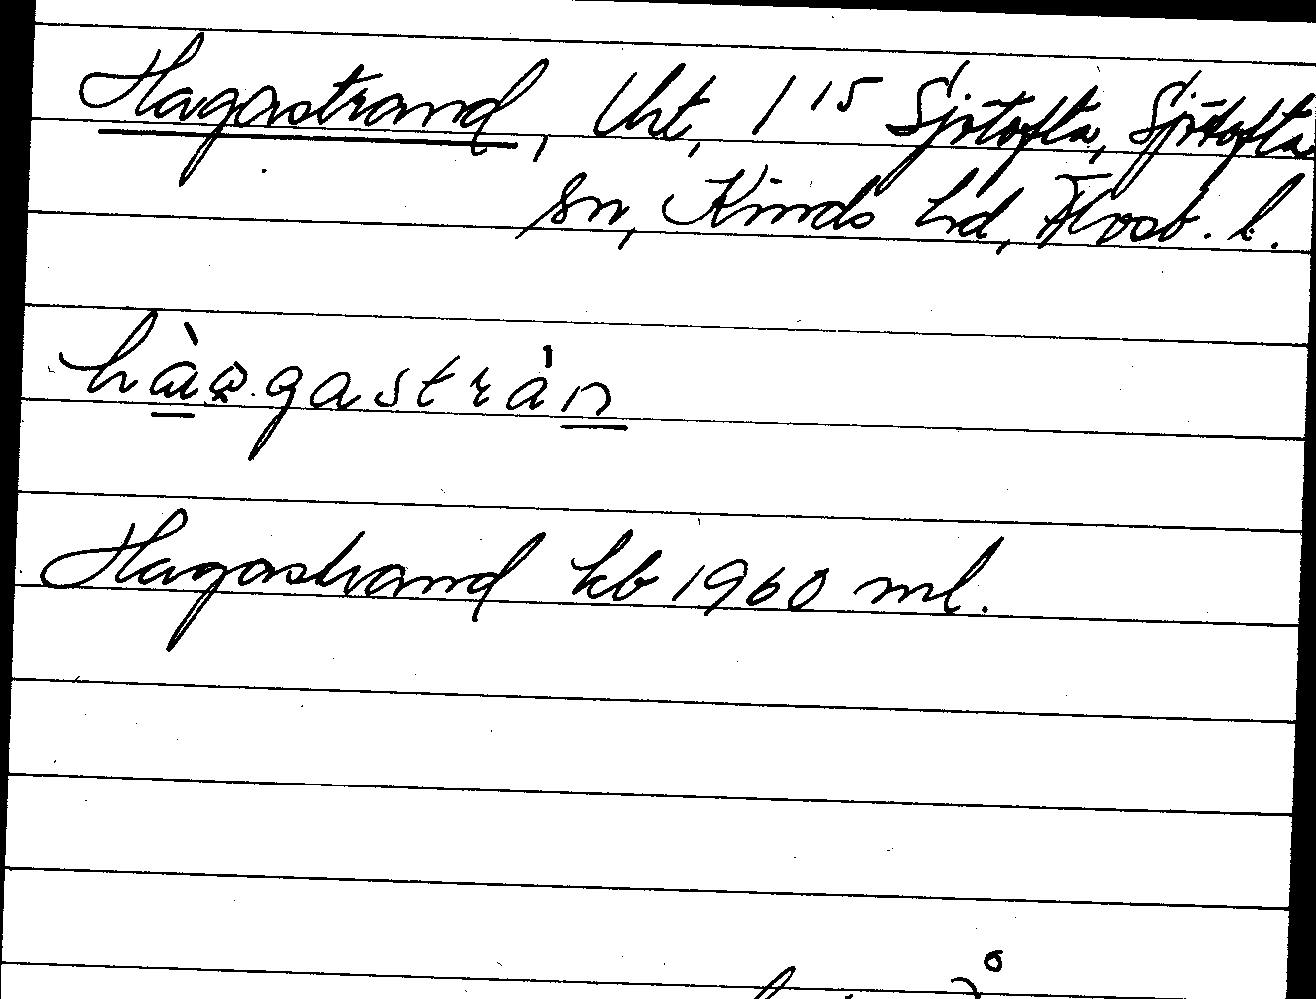 Hagastrand, lht, 1 15 Sjötofta, Sjötofta
sn, Kinds hd, Älvsb. l.
Hagastrand kb 1960 ml.